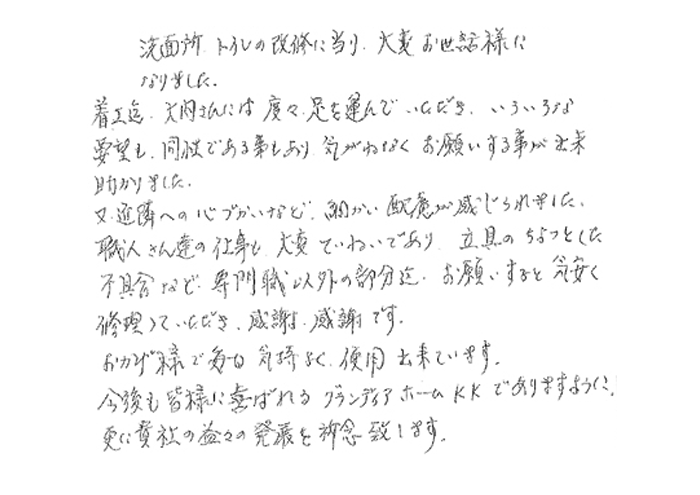 洗面所、トイレの改修に当り、大変お世話様に
なりました。
着工迄、大内さんには度々足を運んでいただき、いろいろな
要望も、同性である事もあり、気がねなくお願いする事が出来
助かりました。
又、近隣への心づかいなど、細かい配慮が感じられました、
職人さん達の仕事も、大変ていねいであり、立具のちょっとした
不具合など、専門職以外の部分迄、お願いすると気安く
修理していただき、感謝、感謝です。
おかげ様で毎日気持よく、使用出来ています。
今後も皆様に喜ばれるグランディアホームKKでありますように、
更に貴社の益々の発展を祈念致します。